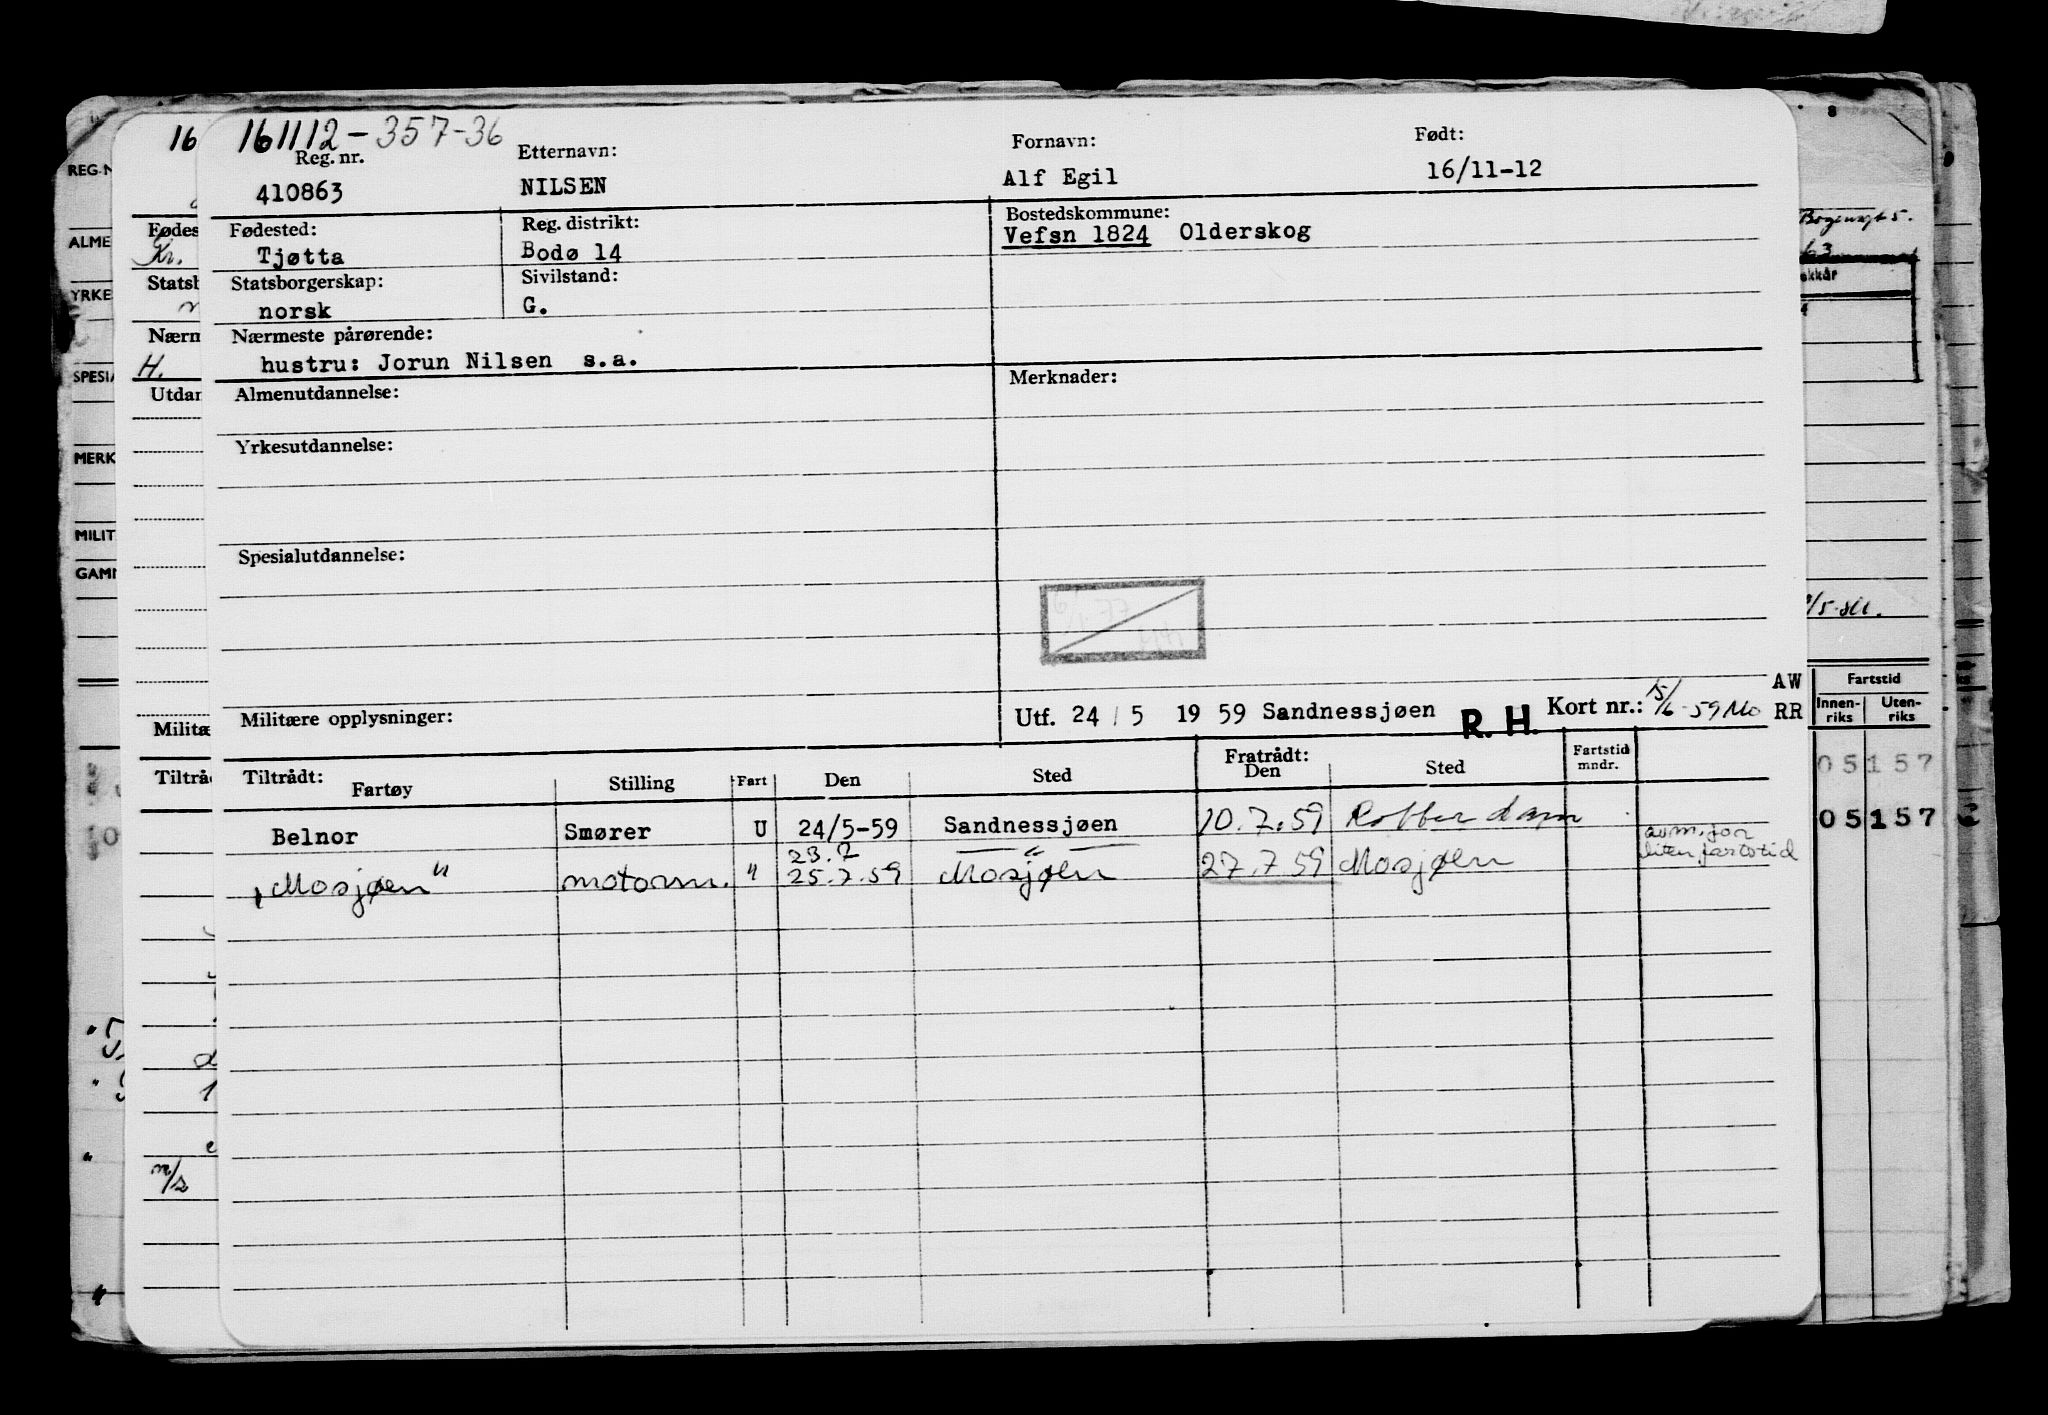 161112-357-36
Reg. nr. Etternavn: Fornavn: Født:
410863 NILSEN Alf Egil 16/11-12
Fødested: Reg. distrikt: Bostedskommune:
Tjøtta Bodø 14 Vefsn 1824 Olderskog
Statsborgerskap: Sivilstand:
norsk G.
Nærmeste pårørende:
hustru: Jorun Nilsen s.a.
Almenutdannelse: Merknader:
Yrkesutdannelse:
Spesialutdannelse:
Militære opplysninger: Utf. 24/5 19 59 Sandnessjøen R.H. Kort nr.: 15/6-59 Mo
Tiltrådt: Fratrådt:
Fartøy Stilling Fart Den Sted Den Sted Fartstid mndr.
Belnor Smører U 24/5-59 Sandnessjøen 10.7.59 Rotterdam
23.7 "
"Mosjøen" motorm. " 25.7.59 Mosjøen 27.7 59 Mosjøen
liten fartstid
16
Fødes
Kr.
Statsb
Nærm
H.
Utdan
Militæ
Tiltråd
REG.N
ALME
YRKE
SPESIA
MERK
MILIT
GAMM
m/s
63
AW
RR
Fartstid
Innen-riks Uten-riks
05 157
05 157